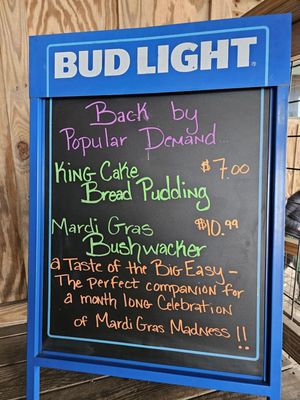 BUD LIGHT
Back by
Popular Demand...
King Cake $7.00
Bread Pudding
Mardi Gras $10.99
Bushwacker
a Taste of the Big Easy –
The perfect companion for
a month long Celebration
of Mardi Gras Madness!!